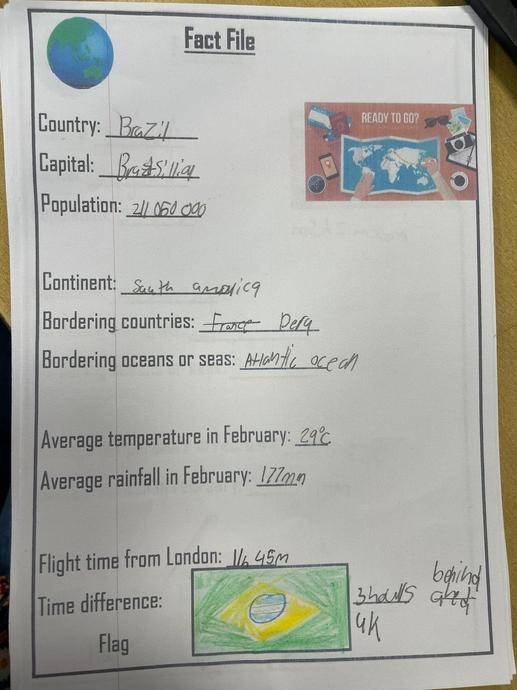 Fact File
READY TO GO?
Country: Brazil
Capital: Brazsillia
Population: 211 050 000
Continent: South amarica
Bordering countries: France Peru
Bordering oceans or seas: Atlantic ocean
Average temperature in February: 29°C
Average rainfall in February: 177mm
Flight time from London: 11h 45m
Time difference: 3 hours behind
Flag